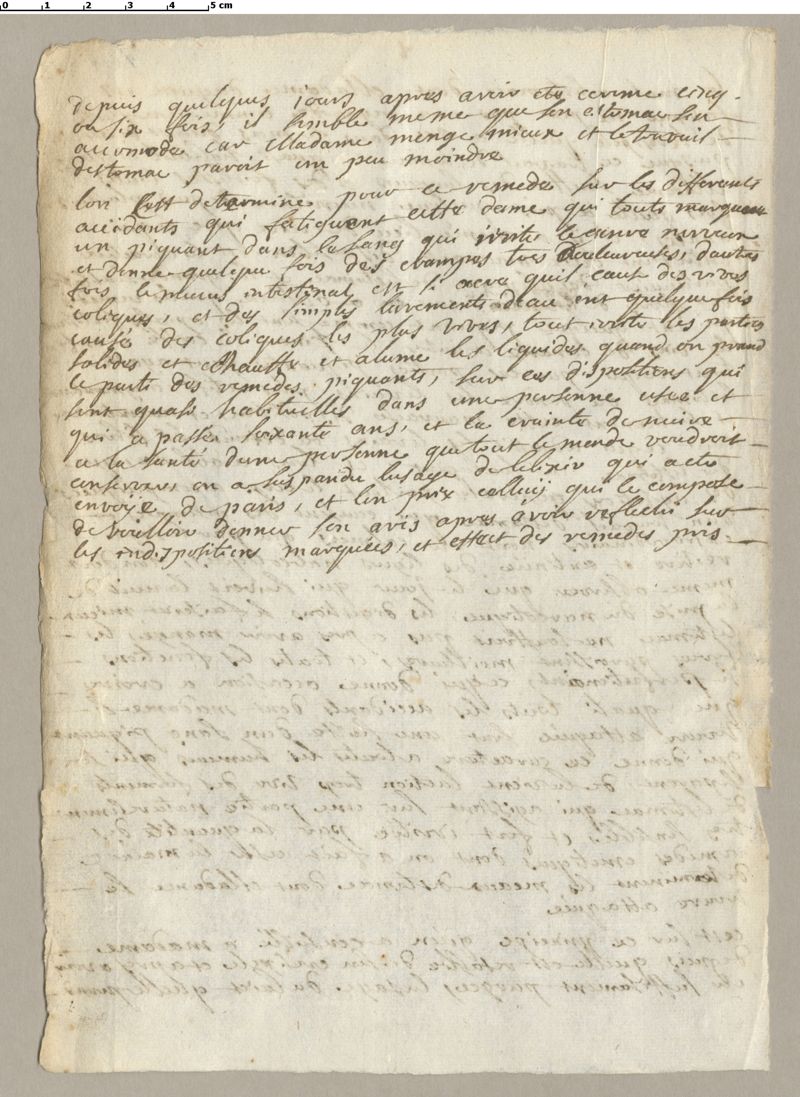 0 1 2 3 4 5 cm
depuis quelques jours apres avoir ete comme cinq
ou six fois, il semble meme que son estomac sen
accomode car Madame menge mieux et le travail
destomac paroit un peu moindre
lon sest determine pour ce remede sur les differents
accidants qui fatiquent cette dame qui touts marquent
un piquant dans le sang qui irrite le genre nerveux
et donne quelque fois des crampes tres douleureuses, dautres
fois le mucus intestinal est si acre quil caut des vives
coliques, et des simples lavements deau ont quelque fois
causé des coliques les plus vives, tout irrite les parties
solides et echauffe et alume les liquides quand on prand
le parti des remedes piquants, sur ces dispositions qui
sont quasi habituelles dans une personne usée et
qui a passée soixante ans, et la crainte de nuire
a la santé dune personne que tout le monde voudroit
conserver, on a suspandu lusage de lelixir qui a ete
envoye de paris, et lon prie celluij qui le compose
de voulloir donner son avis apres avoir reflechi sur
les indispositions marquées, et effect des remedes pris